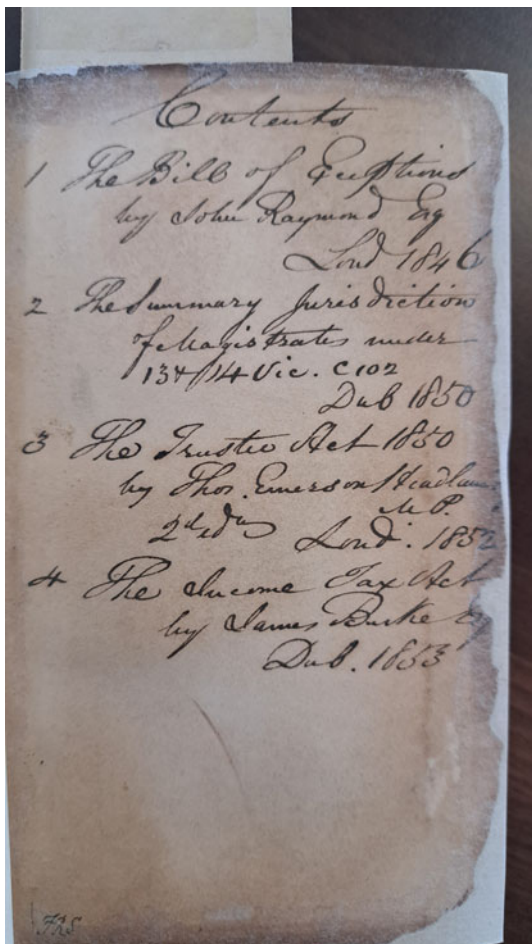 Contents
1 The Bill of Exceptions
by John Raymond Esq
Lond 1846
2 The Summary Jurisdiction
of Magistrates under
13 & 14 Vic. C 102
Dub 1850
3 The Trustee Act 1850
by Thos. Emerson Headlam
M P.
2d edn Lond. 1852
4 The Income Tax Act
by James Burke
Dub. 1853